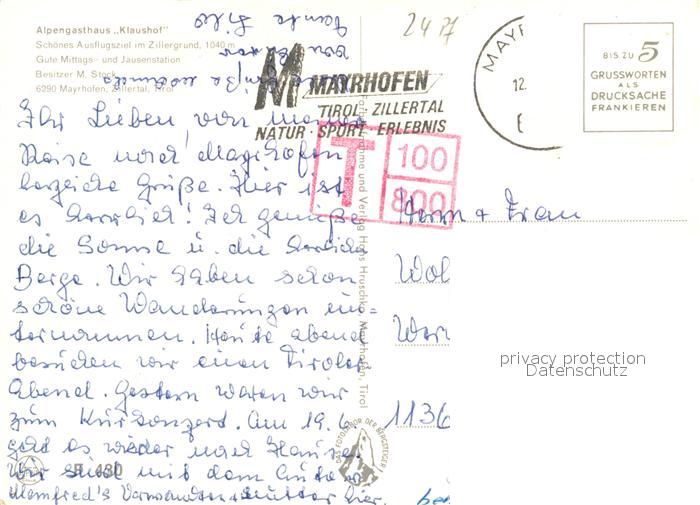 Alpengasthaus „Klaushof"
Schönes Ausflugsziel im Zillergrund, 1040 m
Gute Mittags- und Jausenstation
Besitzer M. Stock
6290 Mayrhofen, Zillertal, Tirol
24 17
M MAYRHOFEN
TIROL - ZILLERTAL
NATUR · SPORT · ERLEBNIS
MAYR
12.
BIS ZU 5
GRUSSWORTEN
ALS
DRUCKSACHE
FRANKIEREN
T 100
800
Ihr Lieben, von meiner
Reise nach Mayrhofen
herzliche Grüße. Hier ist
es herrlich! Ich genieße
die Sonne u. die herrliche
Berge. Wir haben schon
schöne Wanderungen un=
ternommen. Heute abend
besuchen wir einen Tiroler
Abend. Gestern waren wir
zum Kurkonzert. Am 19.6.
geht es wieder nach Hause.
Wir sind mit dem Auto u.
Manfred's Verwandten + Mutter hier.
Grüße
von
Tante
Herrn + Frau
1136
und Verlag Hans Hruschka, Mayrhofen, Tirol
DAS FOTOLABOR DER BERGSTEIGER
R 430
privacy protection
Datenschutz